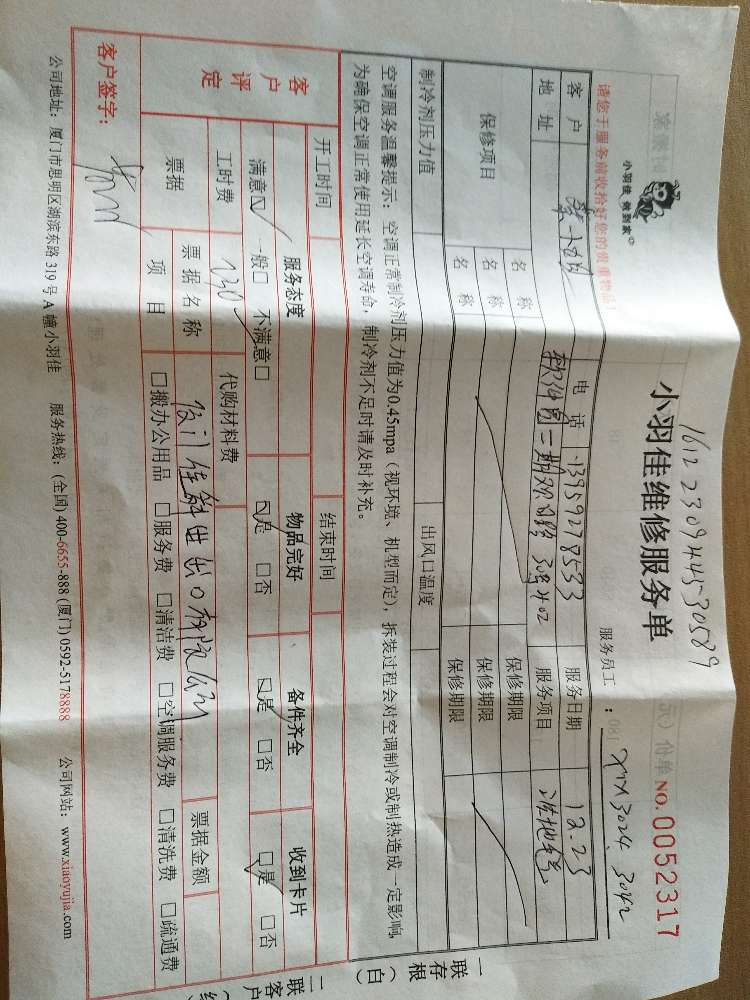 161223094453 0589
小羽佳维修服务单
NO.0052317
小羽佳 做到家
请您于服务前收拾好您的贵重物品!
服务员工: XMX 3024. 3042
客户 电话 13959278533 服务日期 12.23
地址 软件园二期观日路 30号402 服务项目 洗地毯
保修项目 名称 保修期限
名称 保修期限
名称 保修期限
制冷剂压力值 出风口温度
空调服务温馨提示:空调正常制冷剂压力值为0.45mpa(视环境、机型而定),拆装过程会对空调制冷或制热造成一定影响,
为确保空调正常使用延长空调寿命,制冷剂不足时请及时补充。
开工时间 结束时间
客户评定 服务态度 物品完好 备件齐全 收到卡片
满意☑ 一般□ 不满意□ ☑是 □否 ☑是 □否 ☑是 □否
工时费 230 代购材料费
票据 票据名称 厦门佳 进出口有限公司 票据金额
项目 □搬办公用品 □服务费 □清洁费 □空调服务费 □清洗费 □疏通费
客户签字:
公司地址:厦门市思明区湖滨东路319号A幢小羽佳 服务热线:(全国)400-6655-888 (厦门)0592-5178888 公司网站:www.xiaoyujia.com
一联存根(白)
二联客户